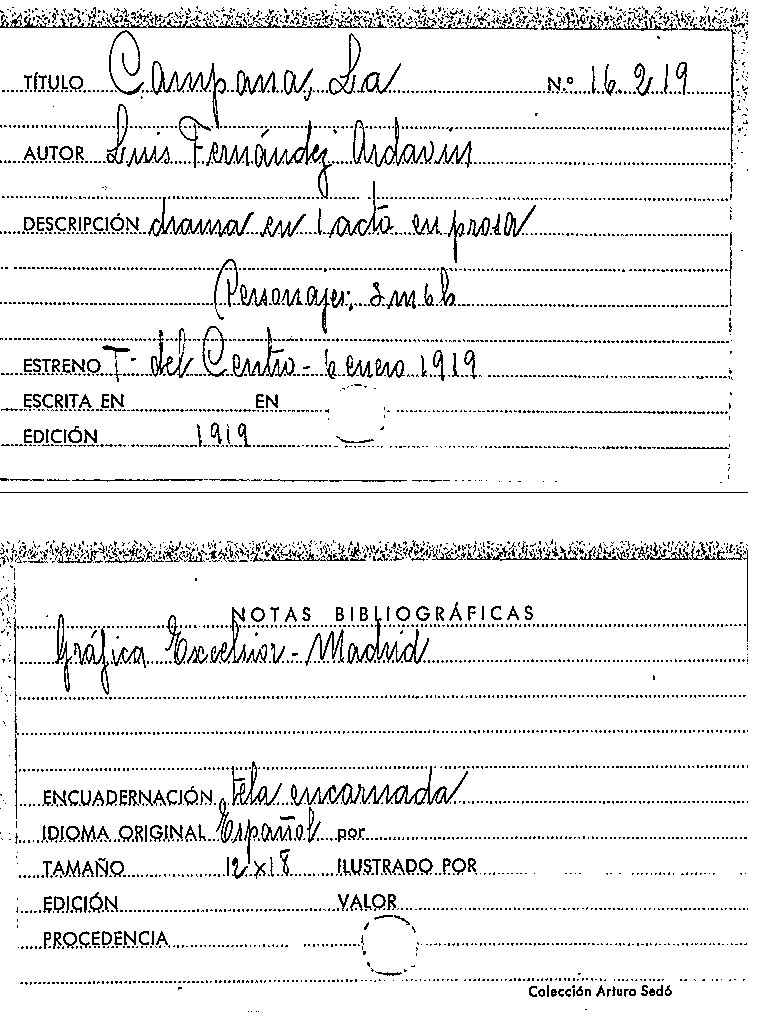 TÍTULO Campana, La N.º 16.219
AUTOR Luis Fernández Ardavin
DESCRIPCIÓN drama en 1 acto en prosa
Personajes: 3 m 6 h
ESTRENO T. del Centro - 6 enero 1919
ESCRITA EN EN
EDICIÓN 1919
NOTAS BIBLIOGRÁFICAS
Gráfica Excelsior - Madrid
ENCUADERNACIÓN tela encarnada
IDIOMA ORIGINAL Español por
TAMAÑO 12 x 18 ILUSTRADO POR
EDICIÓN VALOR
PROCEDENCIA
Colección Arturo Sedó